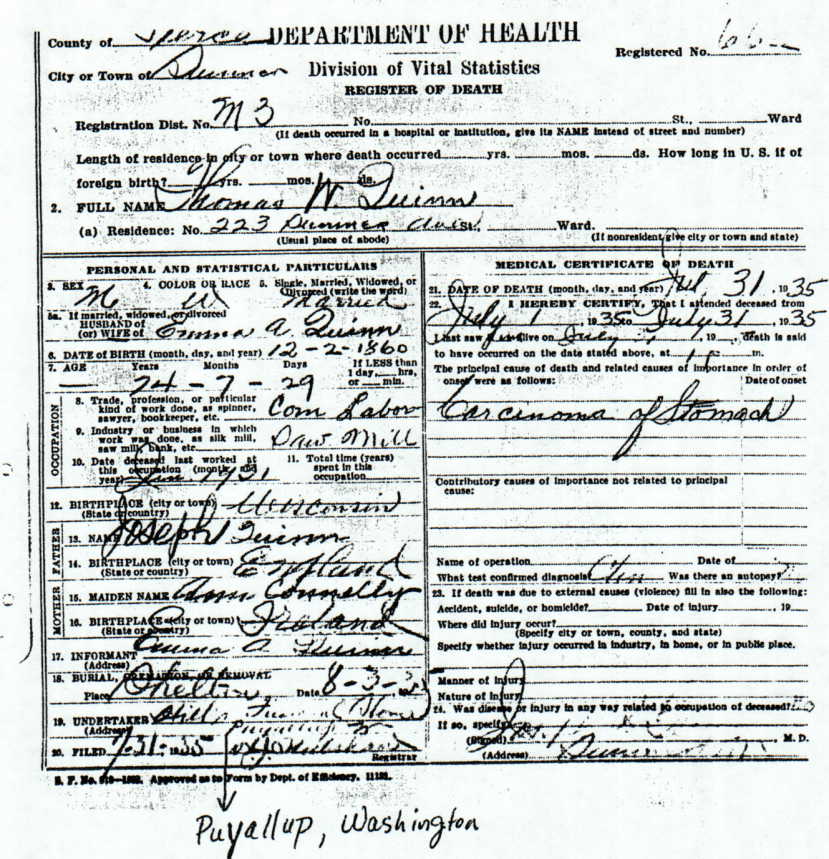 County of Pierce DEPARTMENT OF HEALTH
Registered No. 66
City or Town of Sumner Division of Vital Statistics
REGISTER OF DEATH
Registration Dist. No. M 3 No. St., Ward
(If death occurred in a hospital or institution, give its NAME instead of street and number)
Length of residence in city or town where death occurred yrs. mos. ds. How long in U. S. if of
foreign birth? yrs. mos. ds.
2. FULL NAME Thomas W. Quinn
(a) Residence: No. 223 Sumner Ave St., Ward.
(Usual place of abode) (If nonresident give city or town and state)
PERSONAL AND STATISTICAL PARTICULARS
3. SEX 4. COLOR OR RACE 5. Single, Married, Widowed, or
Divorced (write the word)
M W Married
5a. If married, widowed, or divorced
HUSBAND of
(or) WIFE of Emma A. Quinn
6. DATE OF BIRTH (month, day, and year) 12-2-1860
7. AGE Years Months Days If LESS than
1 day, hrs.
or min.
74 - 7 - 29
OCCUPATION
8. Trade, profession, or particular
kind of work done, as spinner,
sawyer, bookkeeper, etc. Com Labor
9. Industry or business in which
work was done, as silk mill,
saw mill, bank, etc. Saw Mill
10. Date deceased last worked at
this occupation (month and
year) Jan 1931
11. Total time (years)
spent in this
occupation
12. BIRTHPLACE (city or town)
(State or country) Wisconsin
FATHER
13. NAME Joseph Quinn
14. BIRTHPLACE (city or town)
(State or country) England
MOTHER
15. MAIDEN NAME Ann Connelly
16. BIRTHPLACE (city or town)
(State or country) Ireland
17. INFORMANT Emma A. Quinn
(Address)
18. BURIAL, CREMATION, OR REMOVAL
Place Shelton Date 8-3-35
19. UNDERTAKER Hill Funeral Home
(Address) Puyallup
20. FILED 7-31-1935
Registrar
MEDICAL CERTIFICATE OF DEATH
21. DATE OF DEATH (month, day, and year) Jul, 31, 1935
22. I HEREBY CERTIFY, That I attended deceased from
July 1 1935 to July 31, 1935
I last saw alive on July 31, 19 , death is said
to have occurred on the date stated above, at m.
The principal cause of death and related causes of importance in order of
onset were as follows: Date of onset
Carcinoma of Stomach
Contributory causes of importance not related to principal
cause:
Name of operation Date of
What test confirmed diagnosis? Clin Was there an autopsy?
23. If death was due to external causes (violence) fill in also the following:
Accident, suicide, or homicide? Date of injury , 19
Where did injury occur?
(Specify city or town, county, and state)
Specify whether injury occurred in industry, in home, or in public place.
Manner of injury
Nature of injury
24. Was disease or injury in any way related to occupation of deceased? No
If so, specify
(Signed) , M. D.
(Address) Sumner
S. F. No. Approved as to Form by Dept. of Efficiency.
Puyallup, Washington